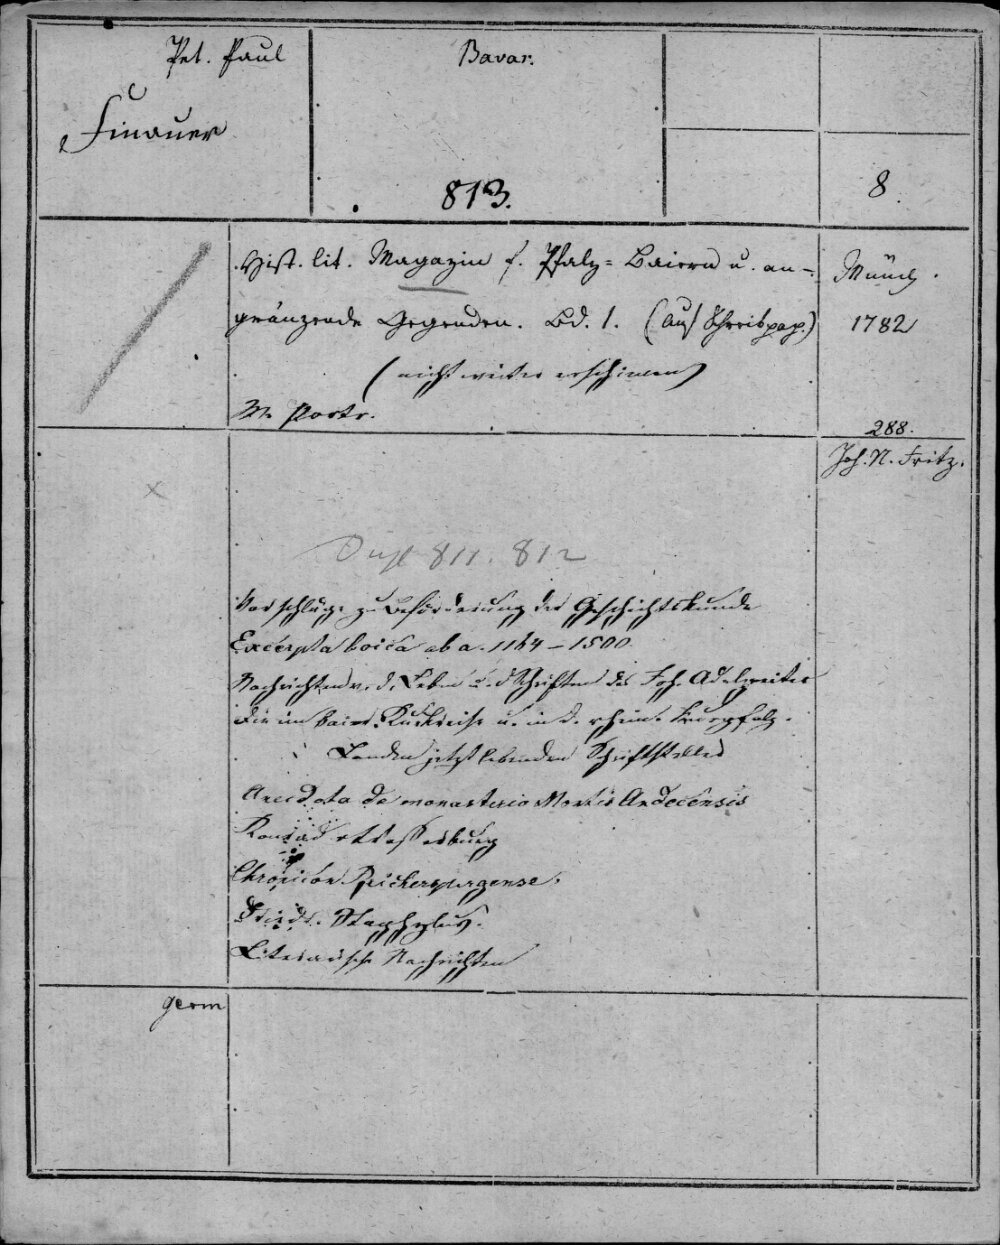 Pet. Paul
Finauer
Bavar.
813.
8
Hist. lit. Magazin f. Pfalz-Baiern u. an-
gränzende Gegenden. Bd. 1. (Auf Schreibpap.)
(nicht weiter erschienen)
M. Portr.
Münch.
1782
288.
Joh. N. Fritz.
Dupl 811. 812
Vorschläge zu Beförderung der Geschichtskunde
Excerpta boica ab a. 1164–1500
Nachrichten v. d. Leben u. d Schriften des Joh. Adelzreiter
Die im baier. Kreise u. in d. rhein. Kurpfalz.
Landen jetzt lebenden Schriftsteller
Anecdota de monasterio Montis Andecensis
Konrad v Wasserburg
Chronicon Reicherspergense.
Friedr. Staphylus.
Literarische Nachrichten
germ